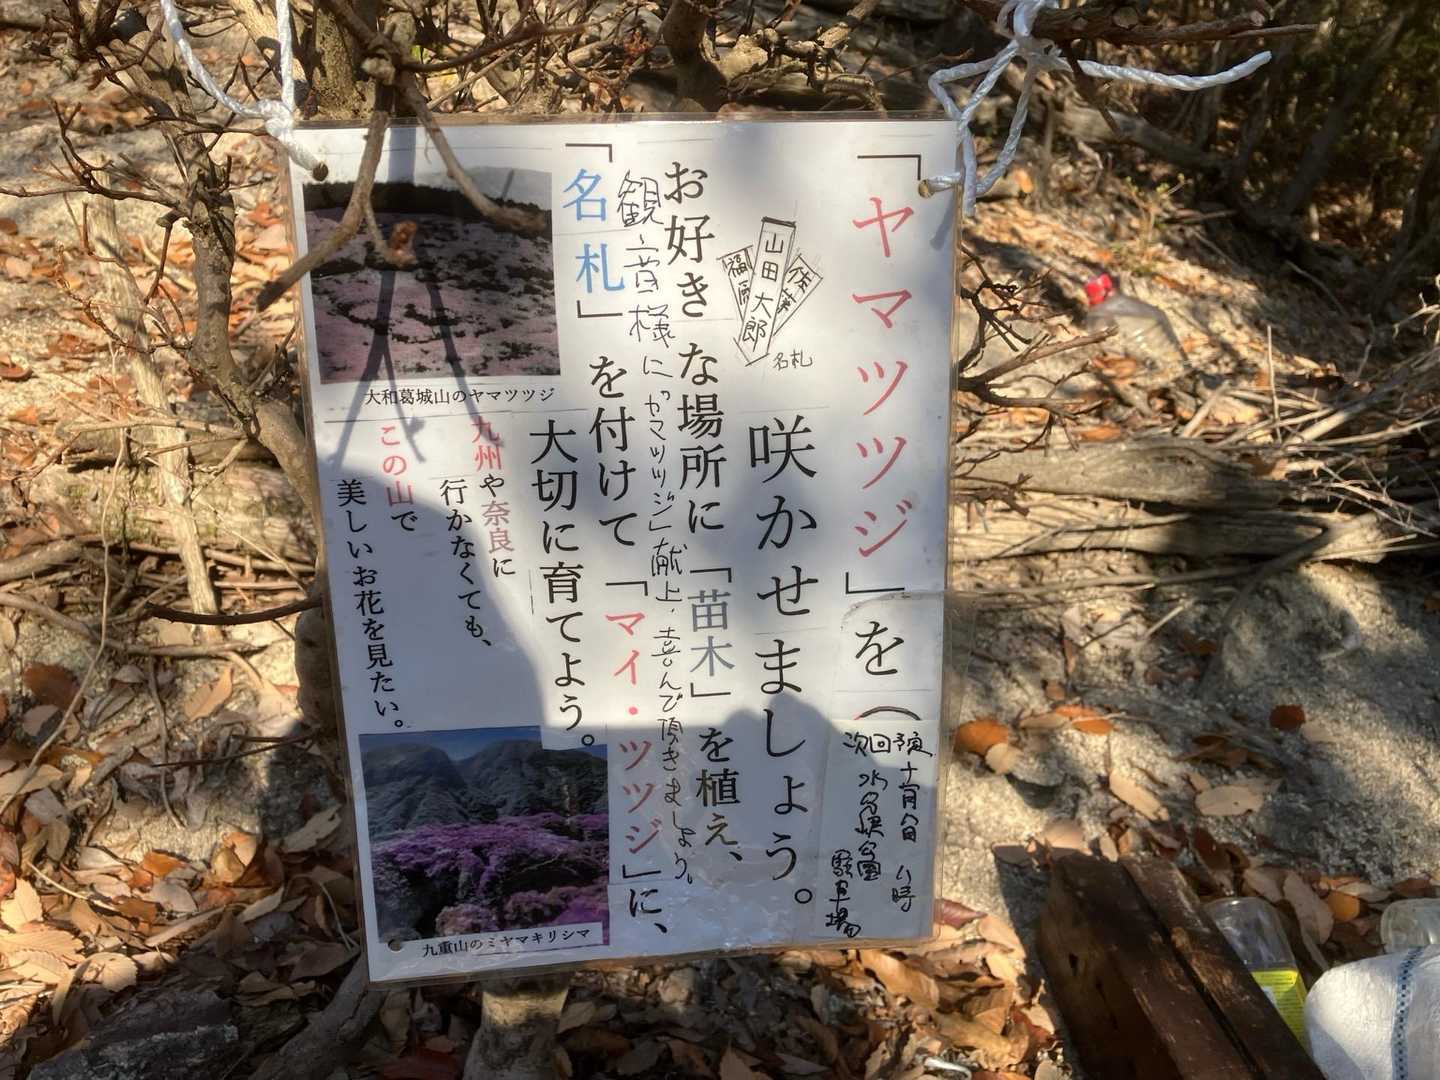 「ヤマツツジ」を
次回予定 十一月八日 八時
水分峡公園
駐車場
咲かせましょう。
佐藤
山田太郎
福原
名札
お好きな場所に「苗木」を植え、
観音様に「ヤマツツジ」献上・喜んで頂きましょう。
「名札」を付けて「マイ・ツツジ」に、
大切に育てよう。
大和葛城山のヤマツツジ
九州や奈良に
行かなくても、
この山で
美しいお花を見たい。
九重山のミヤマキリシマ